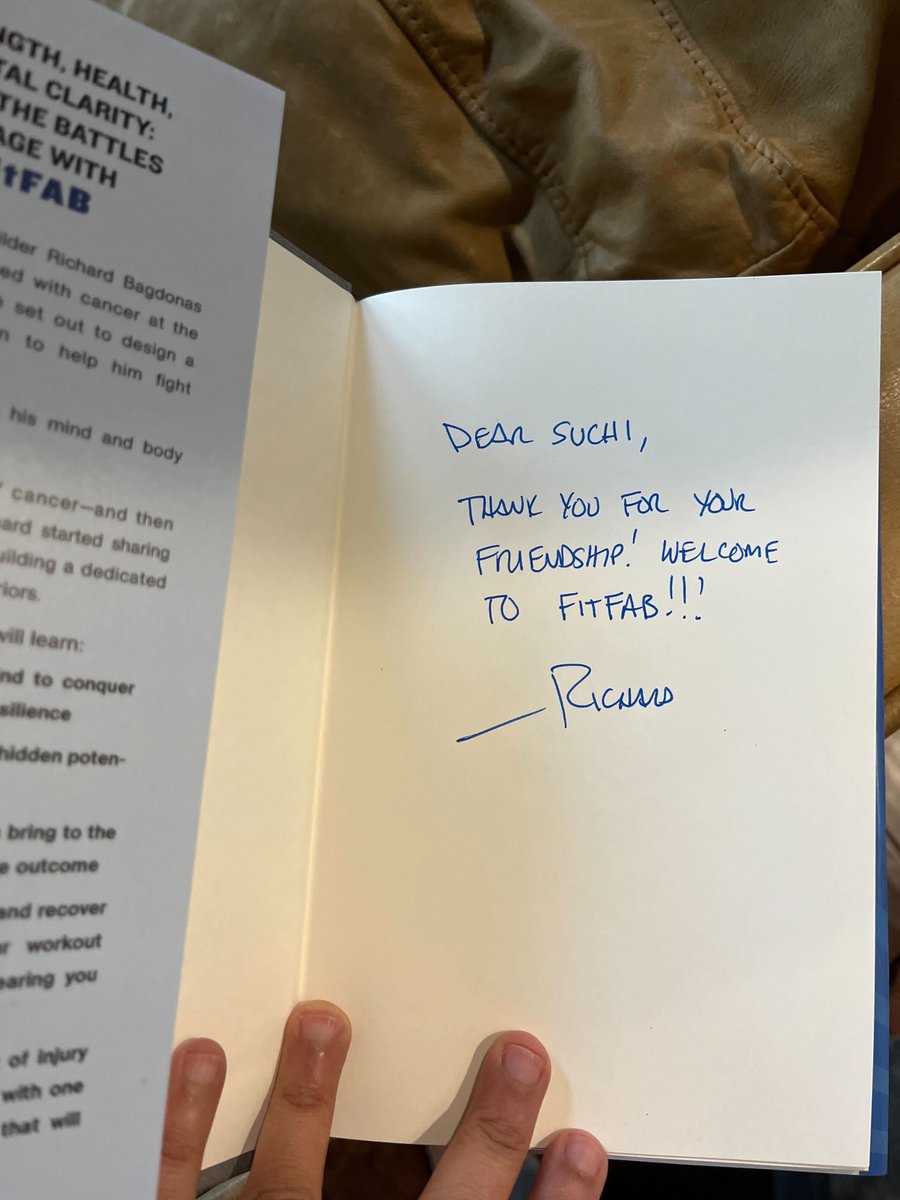 HEALTH,
CLARITY:
THE BATTLES
WITH
FAB
Richard Bagdonas
with cancer at the
set out to design a
to help him fight
his mind and body
cancer—and then
started sharing
a dedicated
will learn:
to conquer
hidden poten-
bring to the
outcome
and recover
workout
you
of injury
with one
that will
DEAR SUCHI,
THANK YOU FOR YOUR
FRIENDSHIP! WELCOME
TO FITFAB!!!
— RICHARD